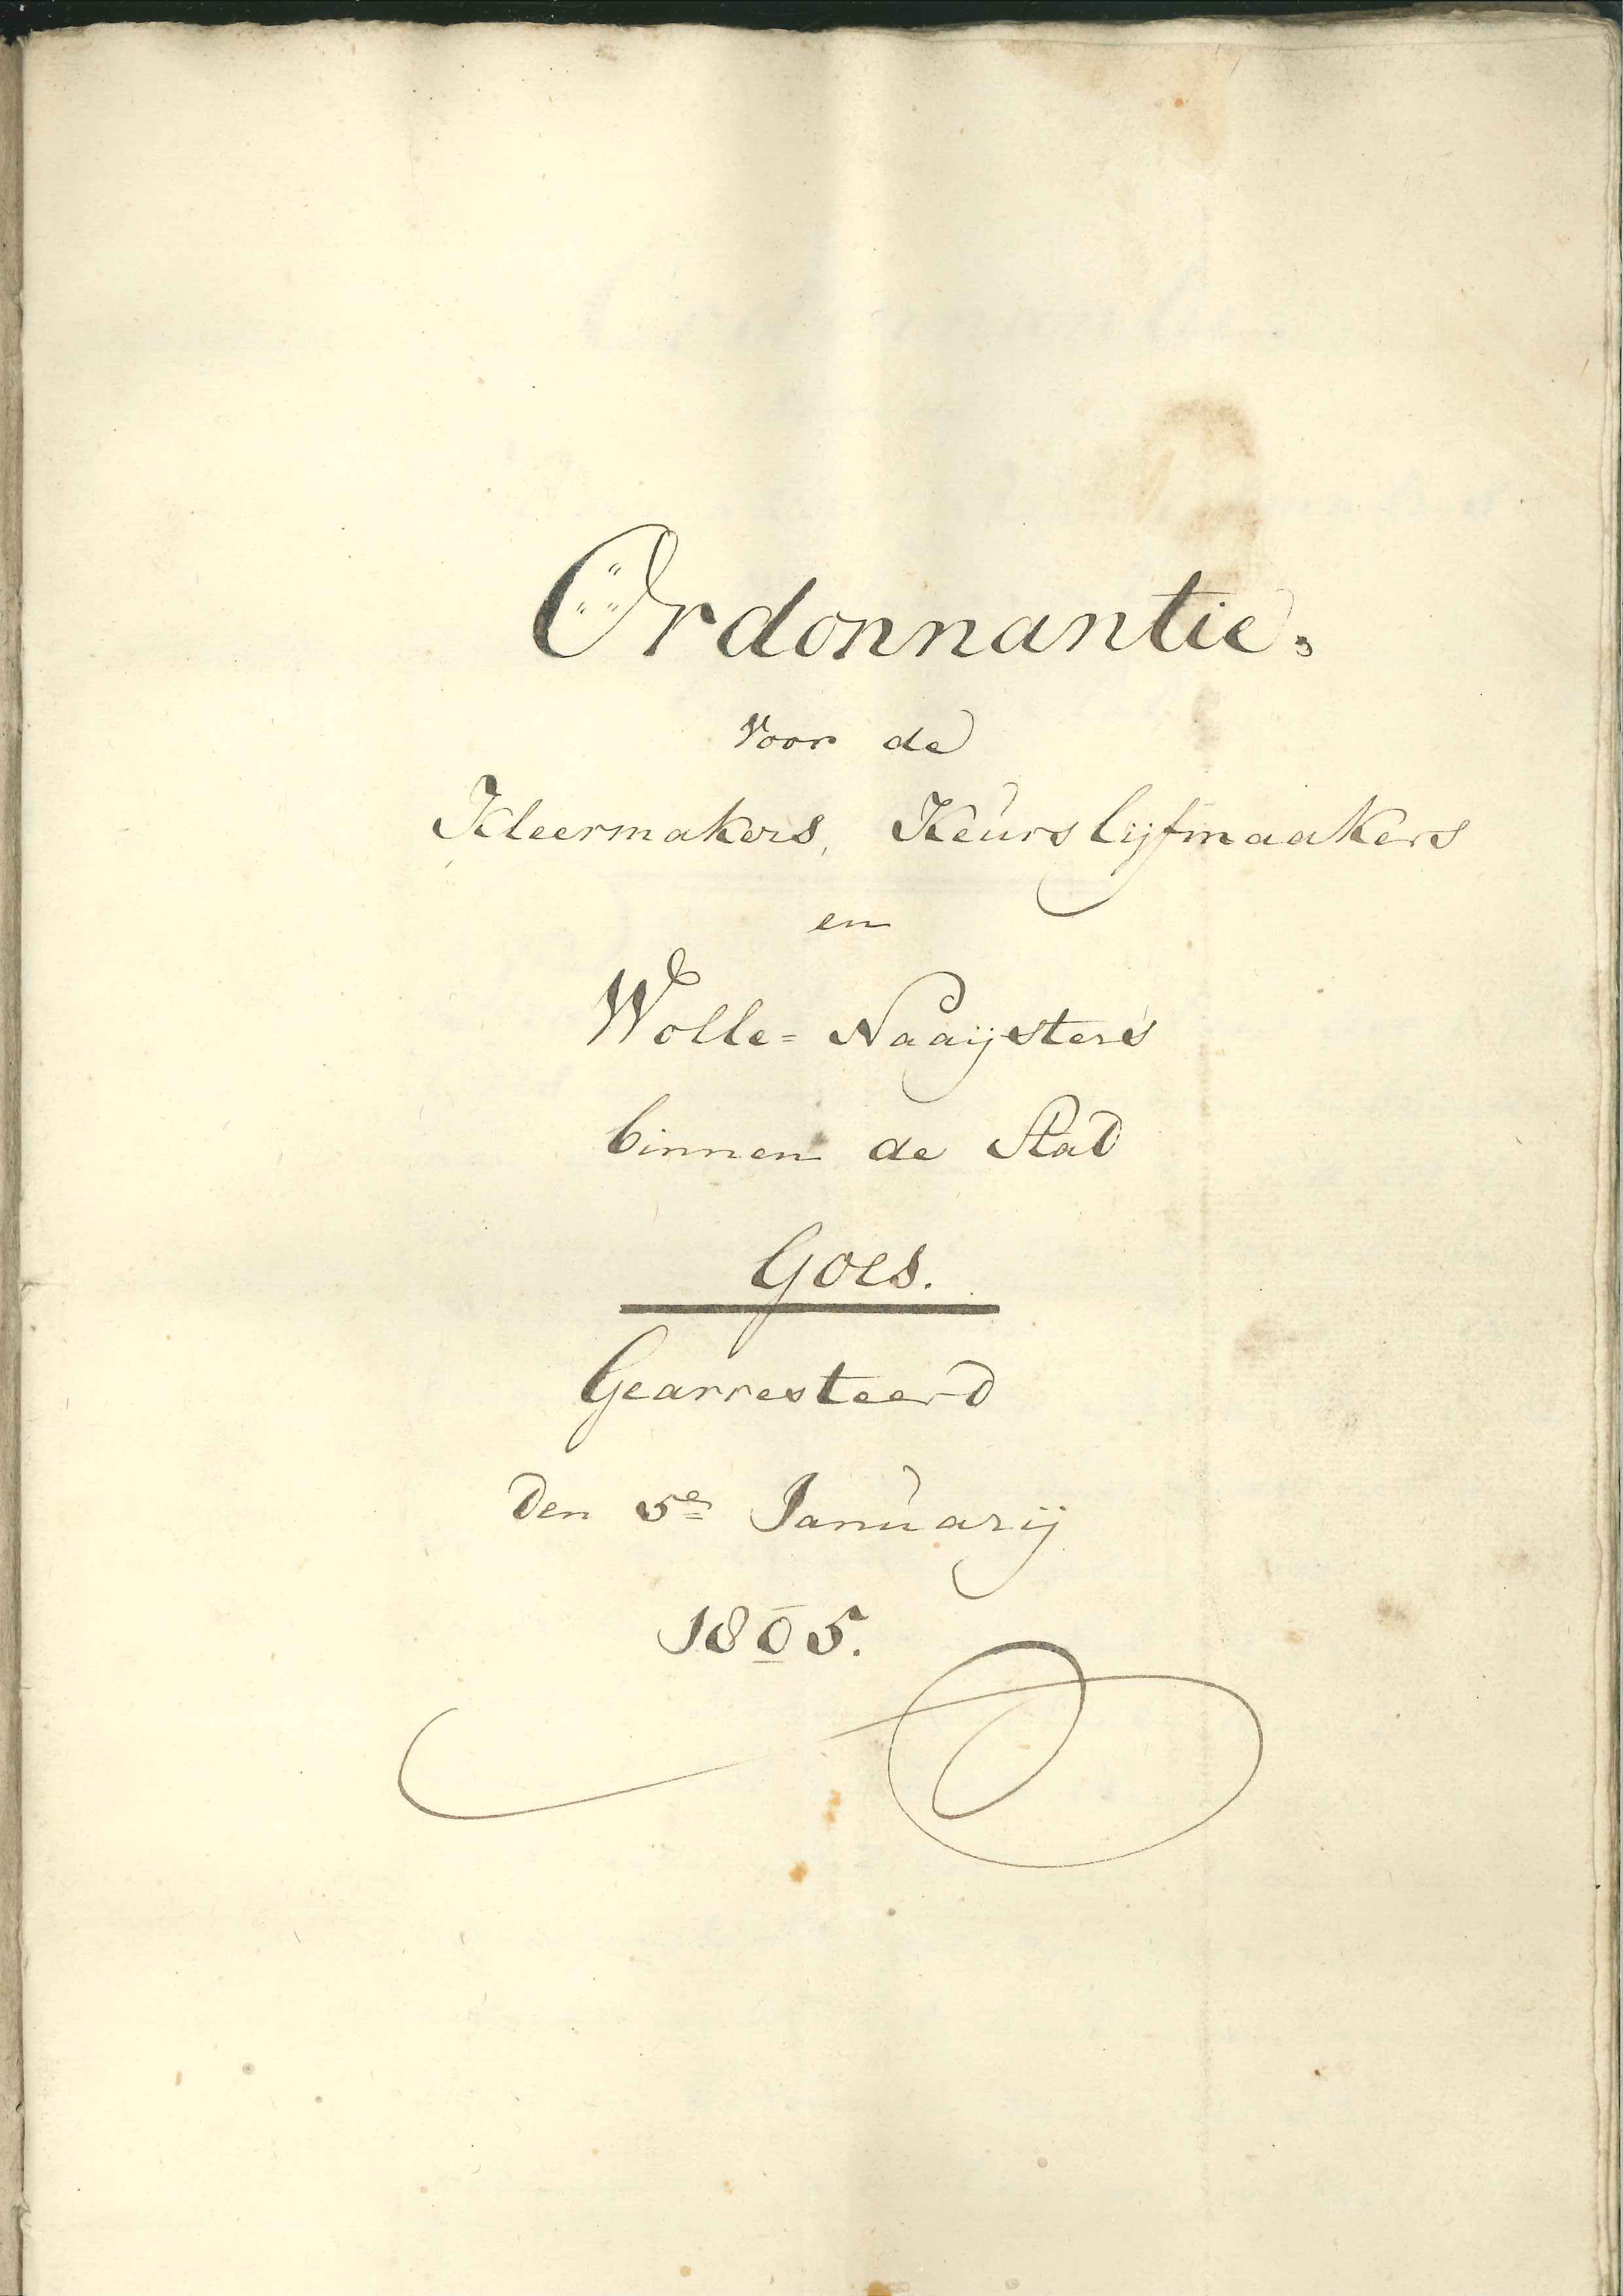 Ordonnantie.
Voor de
Kleermakers, Keurslijfmaakers
en
Wolle= Naaijsters
binnen de Stad
Goes.
Gearresteerd
den 5e Januarij
1805.